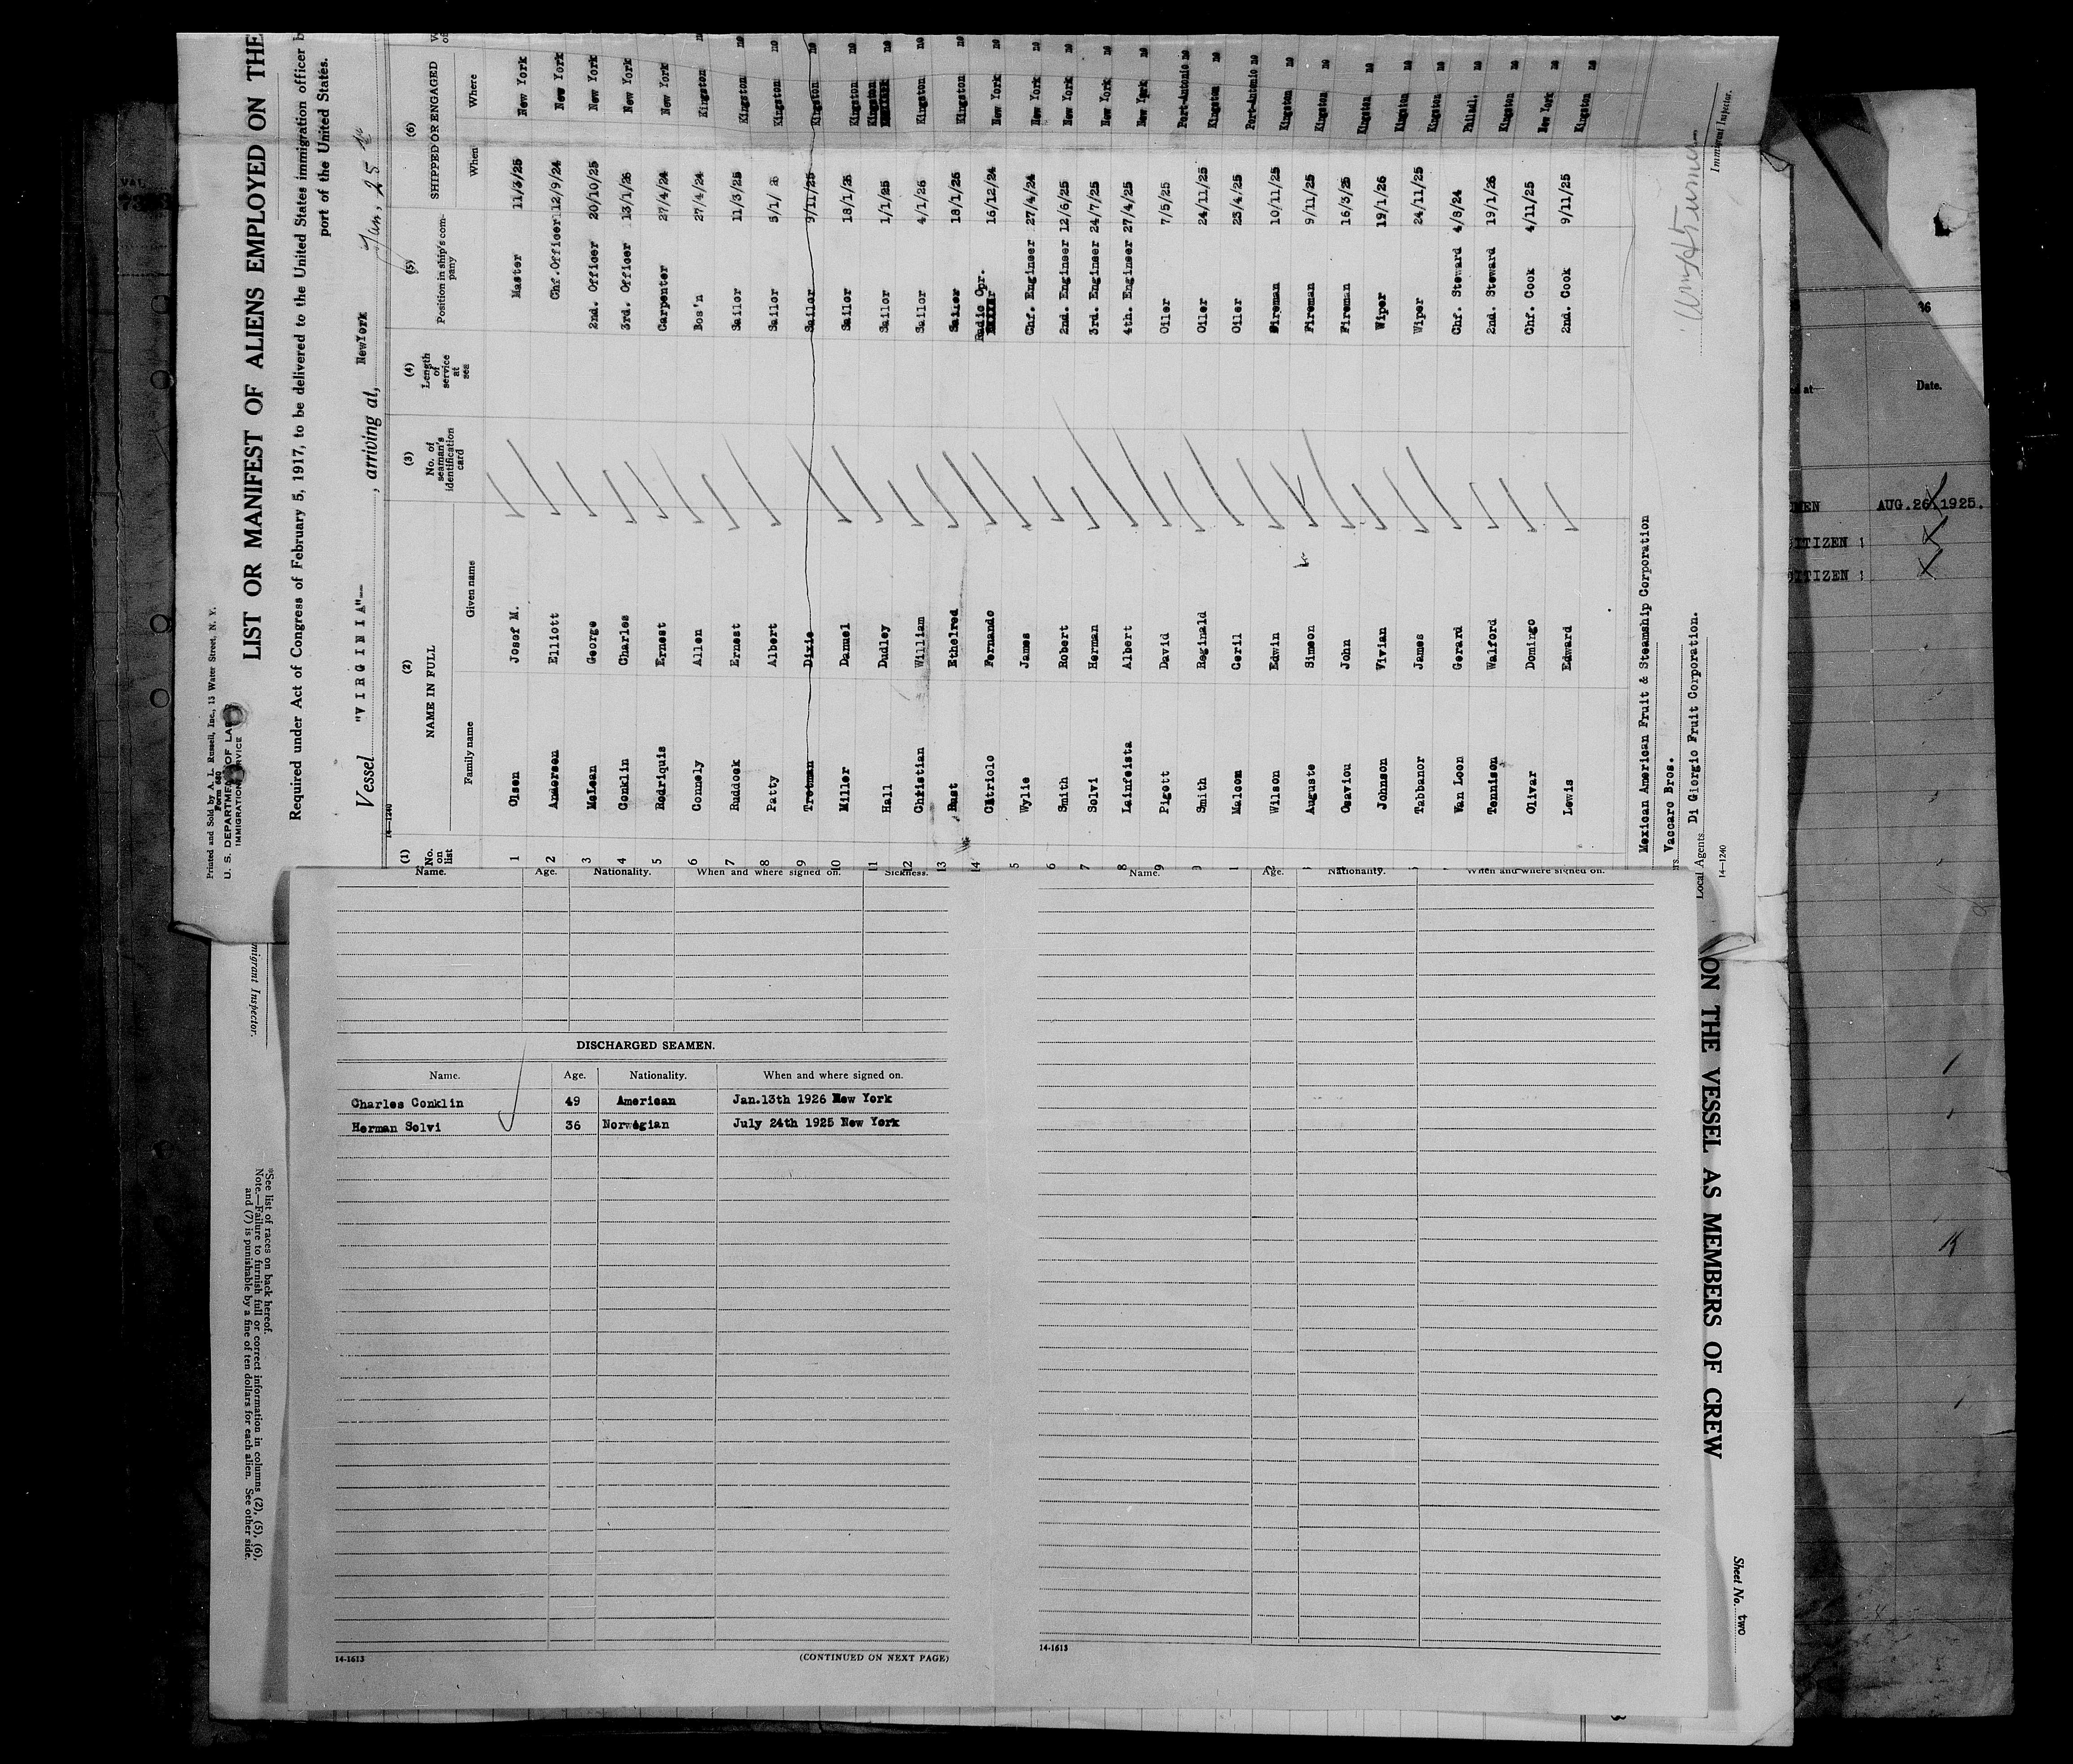 Printed and Sold by A. L. Russell, Inc., 13 Water Street, N. Y.
Form 680
U. S. DEPARTMENT OF LABOR
IMMIGRATION SERVICE
LIST OR MANIFEST OF ALIENS EMPLOYED ON THE
Required under Act of Congress of February 5, 1917, to be delivered to the United States immigration officer b
port of the United States.
Vessel "VIRGINIA"-- , arriving at, NewYork Jan, 25
14-1240
(1) (2) (3) (4) (5) (6)
No. on list NAME IN FULL No. of seaman's identification card Length of service at sea Position in ship's company SHIPPED OR ENGAGED
Family name Given name When Where
1 Olsen Josef M. Master 11/3/25 New York
2 Andersen Elliott Chf.Officer 12/9/24 New York
3 McLean George 2nd. Officer 20/10/25 New York
4 Conklin Charles 3rd. Officer 13/1/26 New York
5 Rodriquis Ernest Carpenter 27/4/24 New York
6 Connely Allen Bos'n 27/4/24 Kingston n
7 Ruddock Ernest Sailor 11/3/25 Kingston no
8 Patty Albert Sailor 5/1/ 26 Kingston no
9 Trotman Dixie Sailor 9/11/25 Kingston no
10 Miller Danuel Sailor 18/1/26 Kingston no
11 Hall Dudley Sailor 1/1/25 Kingston no
12 Christian William Sailor 4/1/26 Kingston no
13 Rust Ethelred Sailor 18/1/26 Kingston no
14 Citriolo Fernando Radio Opr. 16/12/24 New York no
5 Wylie James Chf. Engineer 27/4/24 New York no
6 Smith Robert 2nd. Engineer 12/6/25 New York no
7 Solvi Herman 3rd. Engineer 24/7/25 New York no
8 Lainfeista Albert 4th. Engineer 27/4/25 New York no
9 Pigott David Oiler 7/5/25 Port-Antonio no
Smith Reginald Oiler 24/11/25 Kingston no
1 Malcom Ceril Oiler 23/4/25 Port-Antonio no
2 Wilson Edwin Fireman 10/11/25 Kingston no
Auguste Simeon Fireman 9/11/25 Kingston no
Osaviou John Fireman 16/3/25 Kingston no
Johnson Vivian Wiper 19/1/26 Kingston no
Tabbanor James Wiper 24/11/25 Kingston no
Van Loon Gerard Chf. Steward 4/8/24 Philadl. no
Tennison Walford 2nd. Steward 19/1/26 Kingston no
Olivar Domingo Chf. Cook 4/11/25 New York no
Lewis Edward 2nd. Cook 9/11/25 Kingston no
Mexican American Fruit & Steamship Corporation
Vaccaro Bros.
Local Agents Di Giorgio Fruit Corporation.
14-1240
Immigrant Inspector.
Name. Age. Nationality. When and where signed on. Sickness.
DISCHARGED SEAMEN.
Name. Age. Nationality. When and where signed on.
Charles Conklin 49 American Jan.13th 1926 New York
Herman Solvi 36 Norwegian July 24th 1925 New York
14-1613 (CONTINUED ON NEXT PAGE)
Name. Age. Nationality. When and where signed on.
14-1613
migrant Inspector.
*See list of races on back hereof.
Note.—Failure to furnish full or correct information in columns (2), (5), (6),
and (7) is punishable by a fine of ten dollars for each alien. See other side.
ON THE VESSEL AS MEMBERS OF CREW
Sheet No. two
Date.
AUG.26 1925.
ITIZEN
CITIZEN